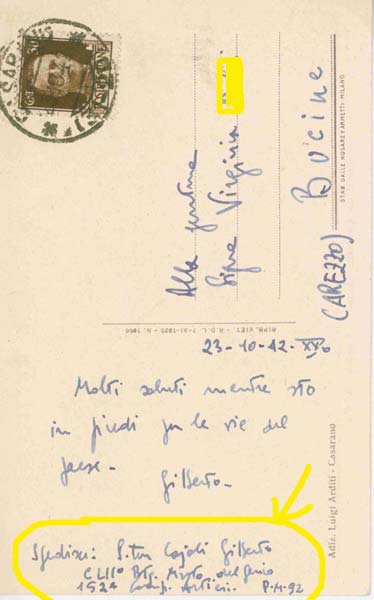 SAR
CENT. 30
Alla gentma
Signa Virginia
Bucine
(AREZZO)
STAB DALLE NOGARE F ARMETTI MILANO
RIPR. VIET. - R.D.L. 7-XI-1925 - N. 1950
23-10-42-XXo
Molti saluti mentre sto
in piedi per le vie del
paese-
Gilberto-
Adiz. Luigi Arditi - Casarano
Spedisce: S.Ten Cajoli Gilberto
CLIIo Btg. Misto del Genio
152a Comp. Artieri. P.M. 92